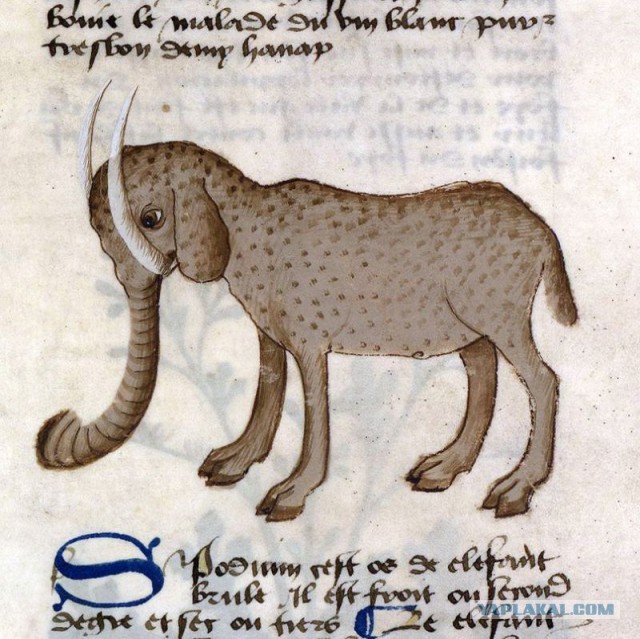 boire le malade du vin blanc puy
tresbon demy hanap
Spodium cest os de elefant
brule il est froit ou second
degre et sec ou tiers Le elefant
YAPLAKAL.COM